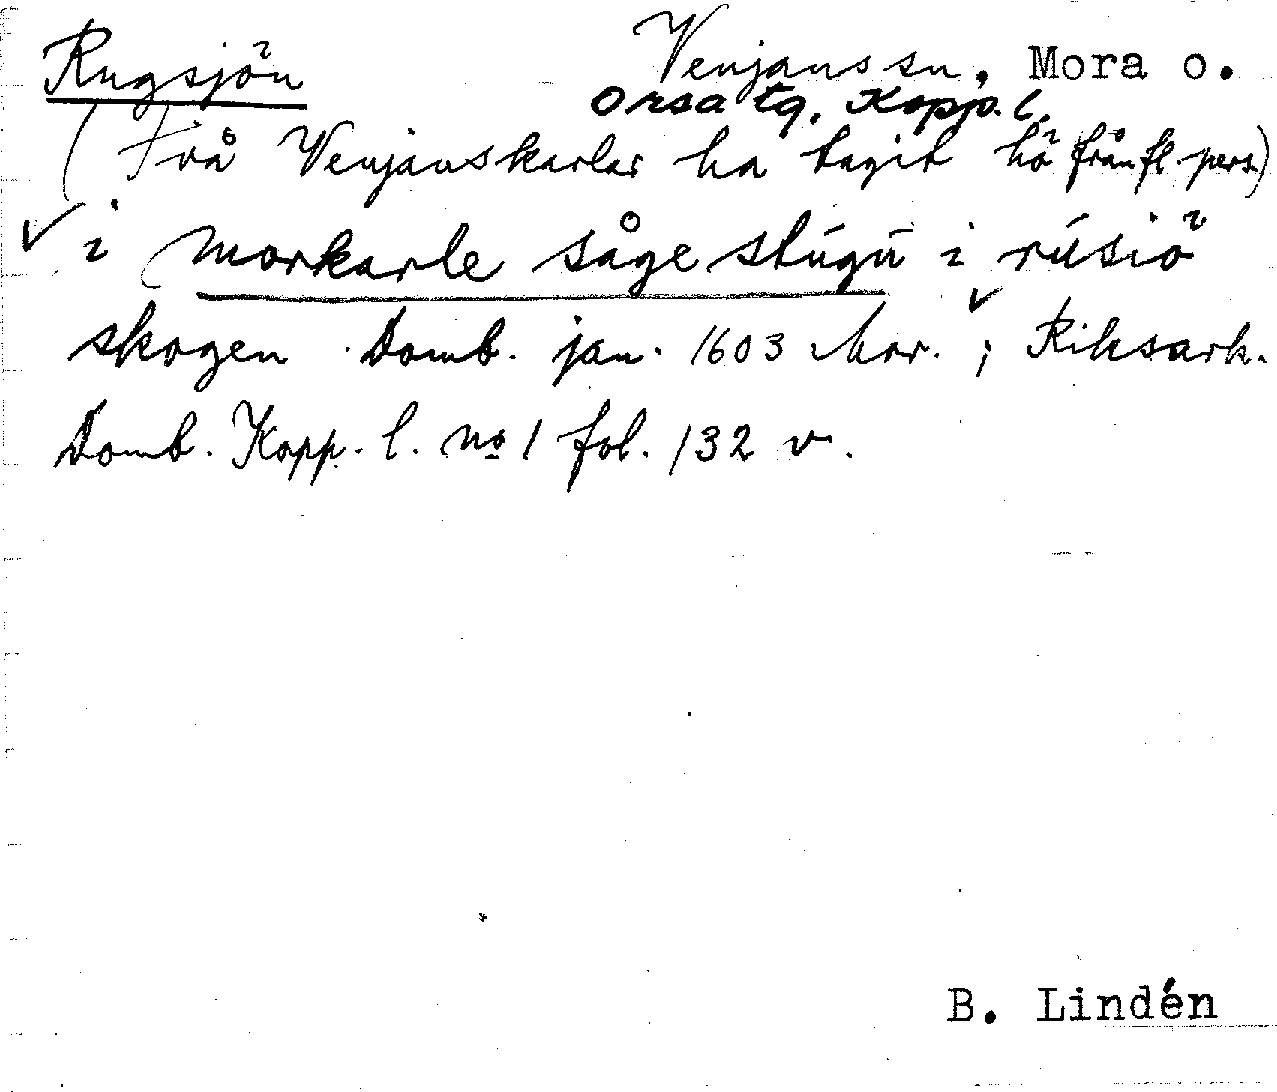 Rugsjön Venjans sn, Mora o.
Orsa tg. Kopp. l.
(Två Venjanskarlar ha tagit hö från fl pers.)
i morkarle såge stúgú i rúsiö
skogen Domb. jan. 1603 Mor. ; Riksark.
Domb. Kopp. l. no 1 fol. 132 v.
B. Lindén